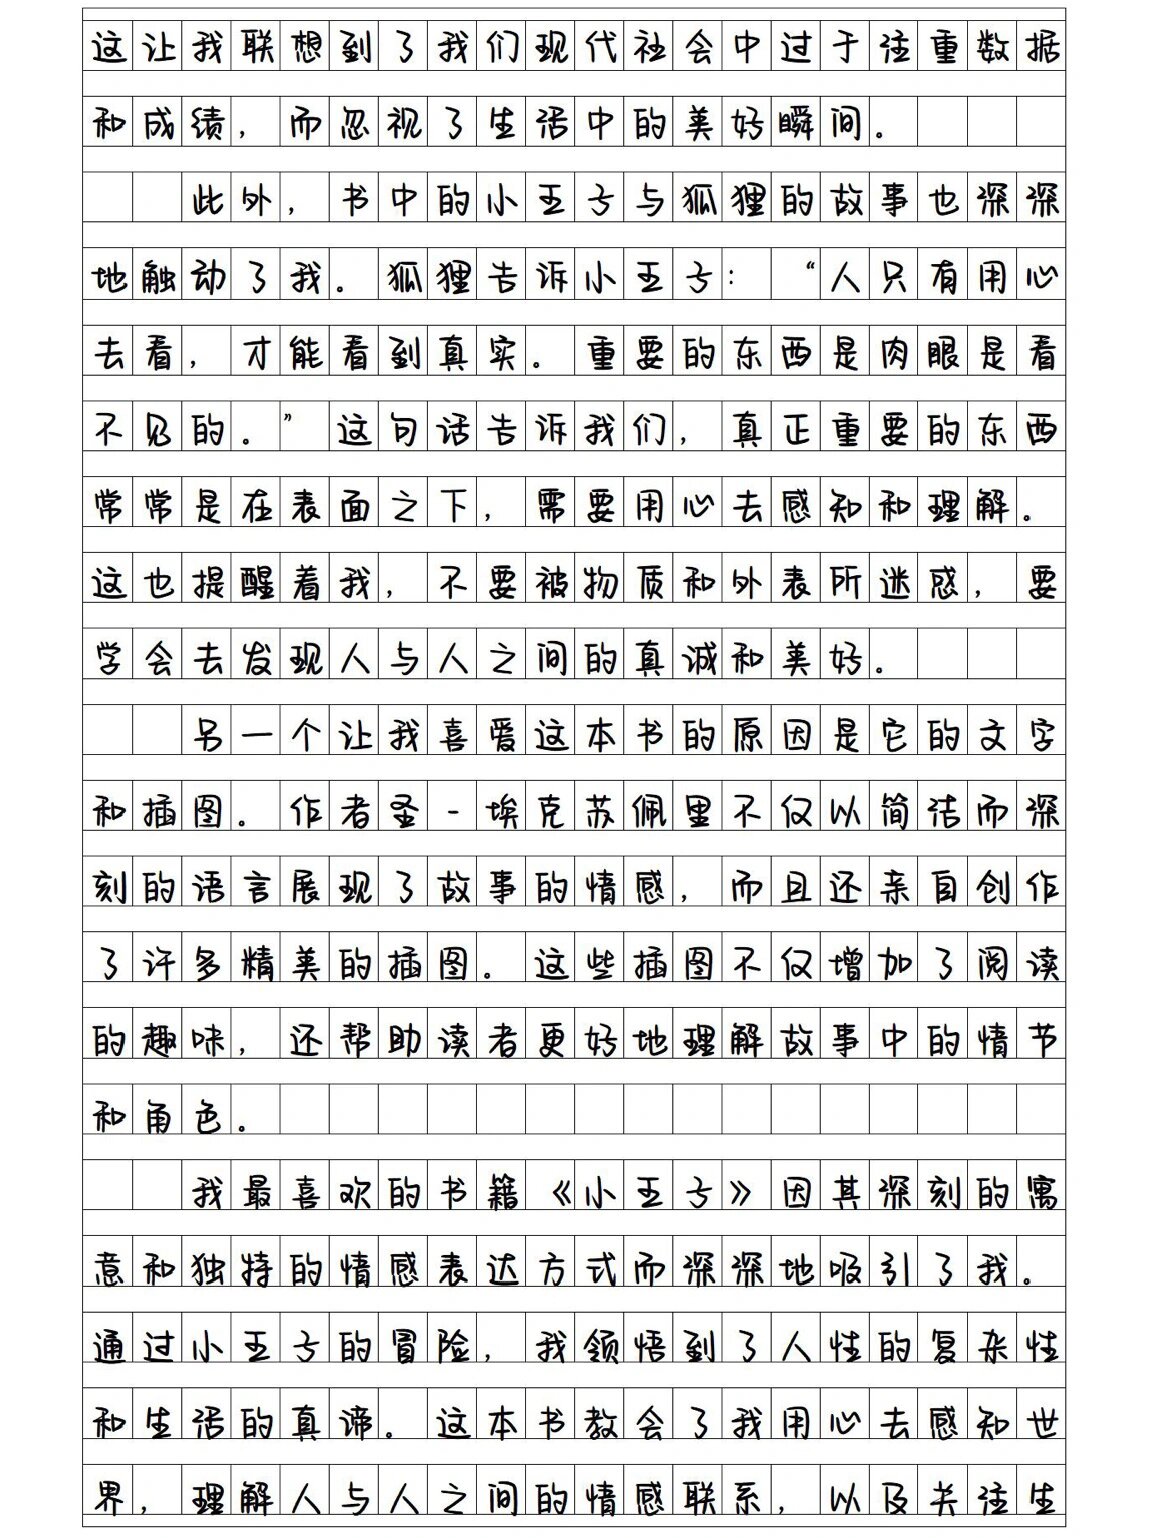 这让我联想到了我们现代社会中过于注重数据
和成绩，而忽视了生活中的美好瞬间。
此外，书中的小王子与狐狸的故事也深深
地触动了我。狐狸告诉小王子：“人只有用心
去看，才能看到真实。重要的东西是肉眼是看
不见的。”这句话告诉我们，真正重要的东西
常常是在表面之下，需要用心去感知和理解。
这也提醒着我，不要被物质和外表所迷惑，要
学会去发现人与人之间的真诚和美好。
另一个让我喜爱这本书的原因是它的文字
和插图。作者圣-埃克苏佩里不仅以简洁而深
刻的语言展现了故事的情感，而且还亲自创作
了许多精美的插图。这些插图不仅增加了阅读
的趣味，还帮助读者更好地理解故事中的情节
和角色。
我最喜欢的书籍《小王子》因其深刻的寓
意和独特的情感表达方式而深深地吸引了我。
通过小王子的冒险，我领悟到了人性的复杂性
和生活的真谛。这本书教会了我用心去感知世
界，理解人与人之间的情感联系，以及关注生